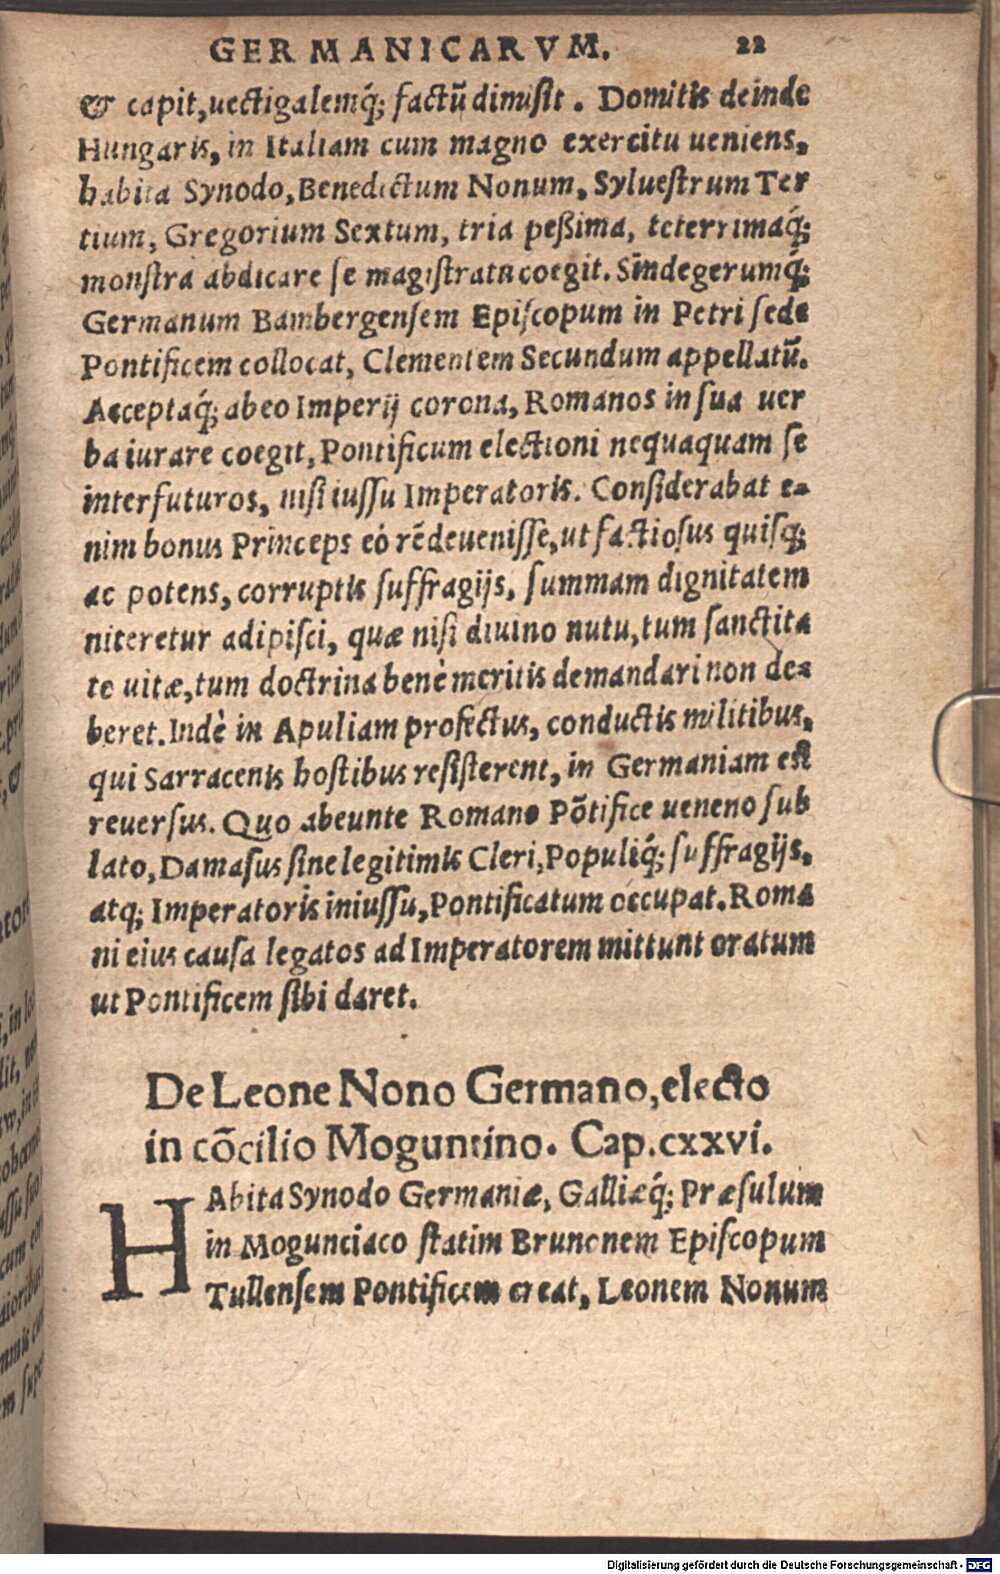 GERMANICARVM. 22
& capit, uectigalemq́; factũ dimisit. Domitis deinde
Hungaris, in Italiam cum magno exercitu ueniens,
habita Synodo, Benedictum Nonum, Syluestrum Ter
tium, Gregorium Sextum, tria peßima, teterrimaq́;
monstra abdicare se magistratu coegit. Sindegerumq́;
Germanum Bambergensem Episcopum in Petri sede
Pontificem collocat, Clementem Secundum appellatũ.
Acceptaq́; ab eo Imperij corona, Romanos in sua uer
ba iurare coegit, Pontificum electioni nequaquam se
interfuturos, nisi iussu Imperatoris. Considerabat e-
nim bonus Princeps eò rẽ deuenisse, ut factiosus quisq;
ac potens, corruptis suffragijs, summam dignitatem
niteretur adipisci, quæ nisi diuino nutu, tum sanctita
te uitæ, tum doctrina benè meritis demandari non de-
beret. Indè in Apuliam profectus, conductis militibus,
qui Sarracenis hostibus resisterent, in Germaniam est
reuersus. Quo abeunte Romano Põtifice ueneno sub
lato, Damasus sine legitimis Cleri, Populiq́; suffragijs,
atq; Imperatoris iniussu, Pontificatum occupat. Roma
ni eius causa legatos ad Imperatorem mittunt oratum
ut Pontificem sibi daret.
De Leone Nono Germano, electo
in cõcilio Moguntino. Cap. cxxvi.
HAbita Synodo Germaniæ, Galliæq́; Præsulum
in Mogunciaco statim Brunonem Episcopum
Tullensem Pontificem creat, Leonem Nonum
Digitalisierung gefördert durch die Deutsche Forschungsgemeinschaft - DFG